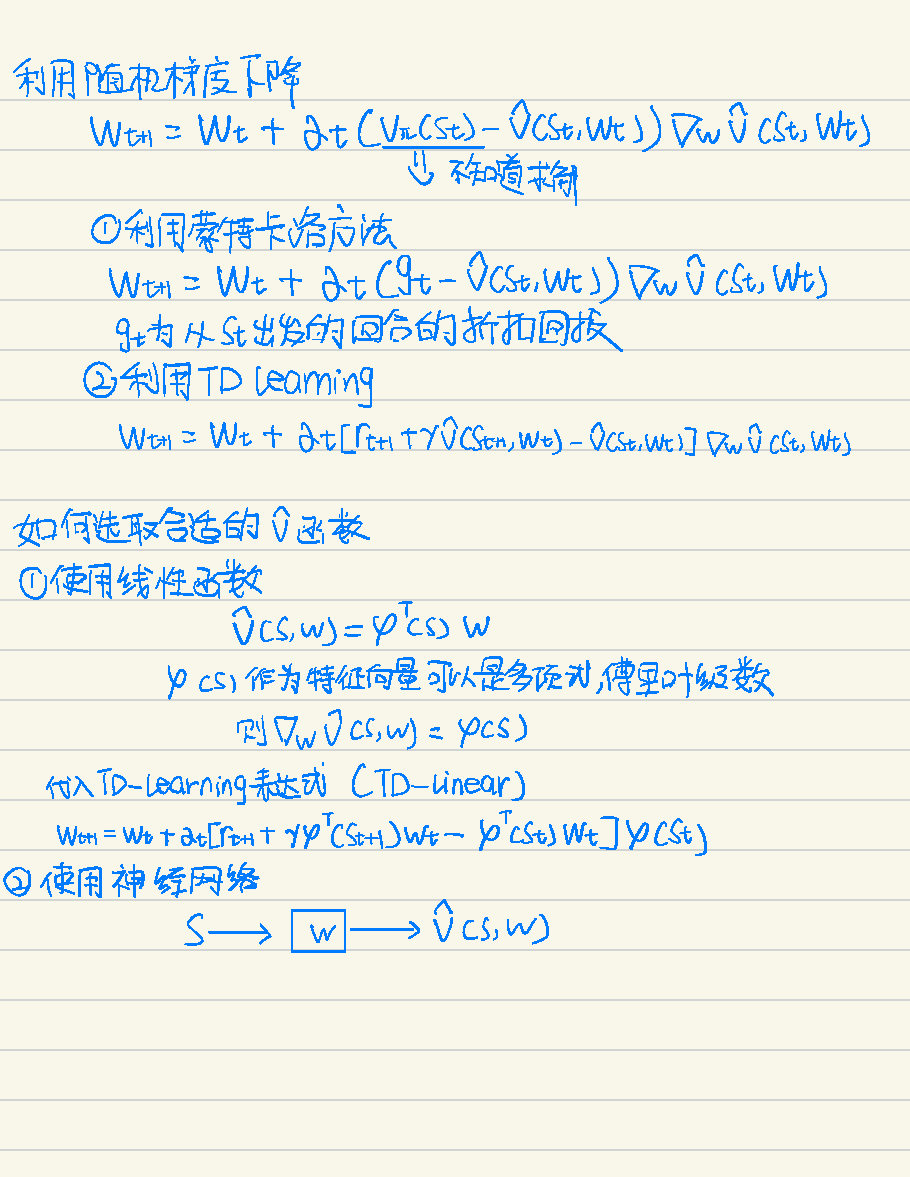 利用随机梯度下降
Wt+1 = Wt + αt (Vπ(St) - V̂(St, Wt)) ∇w V̂(St, Wt)
⇓ 不知道求解
① 利用蒙特卡洛方法
Wt+1 = Wt + αt (gt - V̂(St, Wt)) ∇w V̂(St, Wt)
gt为从St出发的回合的折扣回报
② 利用TD Learning
Wt+1 = Wt + αt [rt+1 + γV̂(St+1, Wt) - V̂(St, Wt)] ∇w V̂(St, Wt)
如何选取合适的 V̂ 函数
① 使用线性函数
V̂(S, W) = φᵀ(S) W
φ(S) 作为特征向量可以是多项式, 傅里叶级数
则 ∇w V̂(S, W) = φ(S)
代入TD-Learning表达式 (TD-Linear)
Wt+1 = Wt + αt [rt+1 + γφᵀ(St+1) Wt - φᵀ(St) Wt] φ(St)
② 使用神经网络
S → W → V̂(S, W)